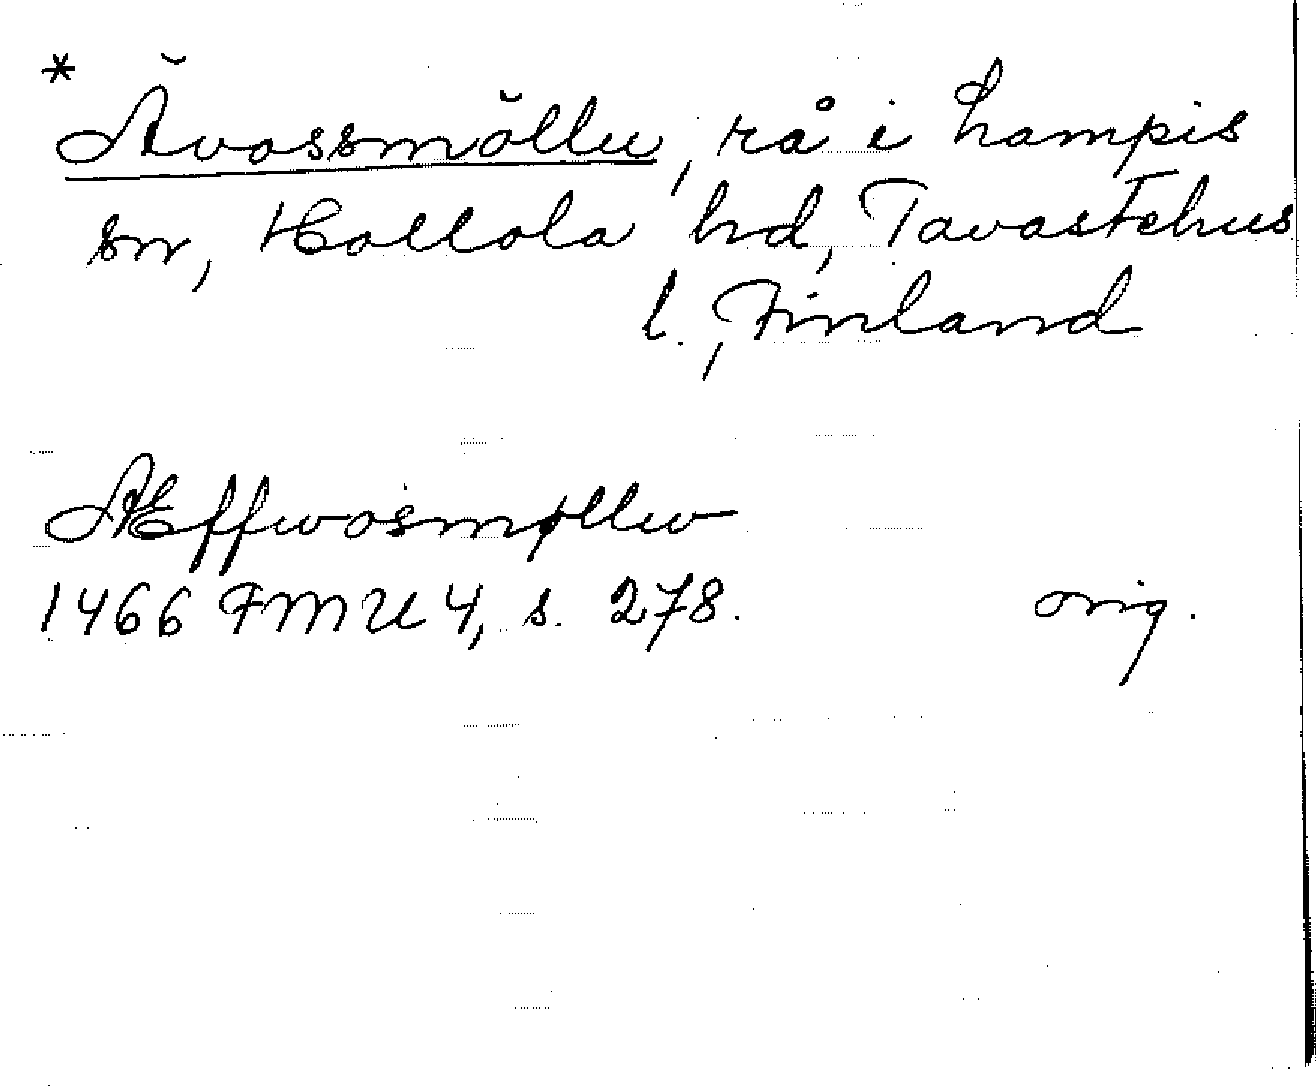 * Ävossmöllu, rå i Lampis
sn, Hollola hd, Tavastehus
l., Finland
Æffwosmøllw
1466 FMU 4, s. 278. orig.